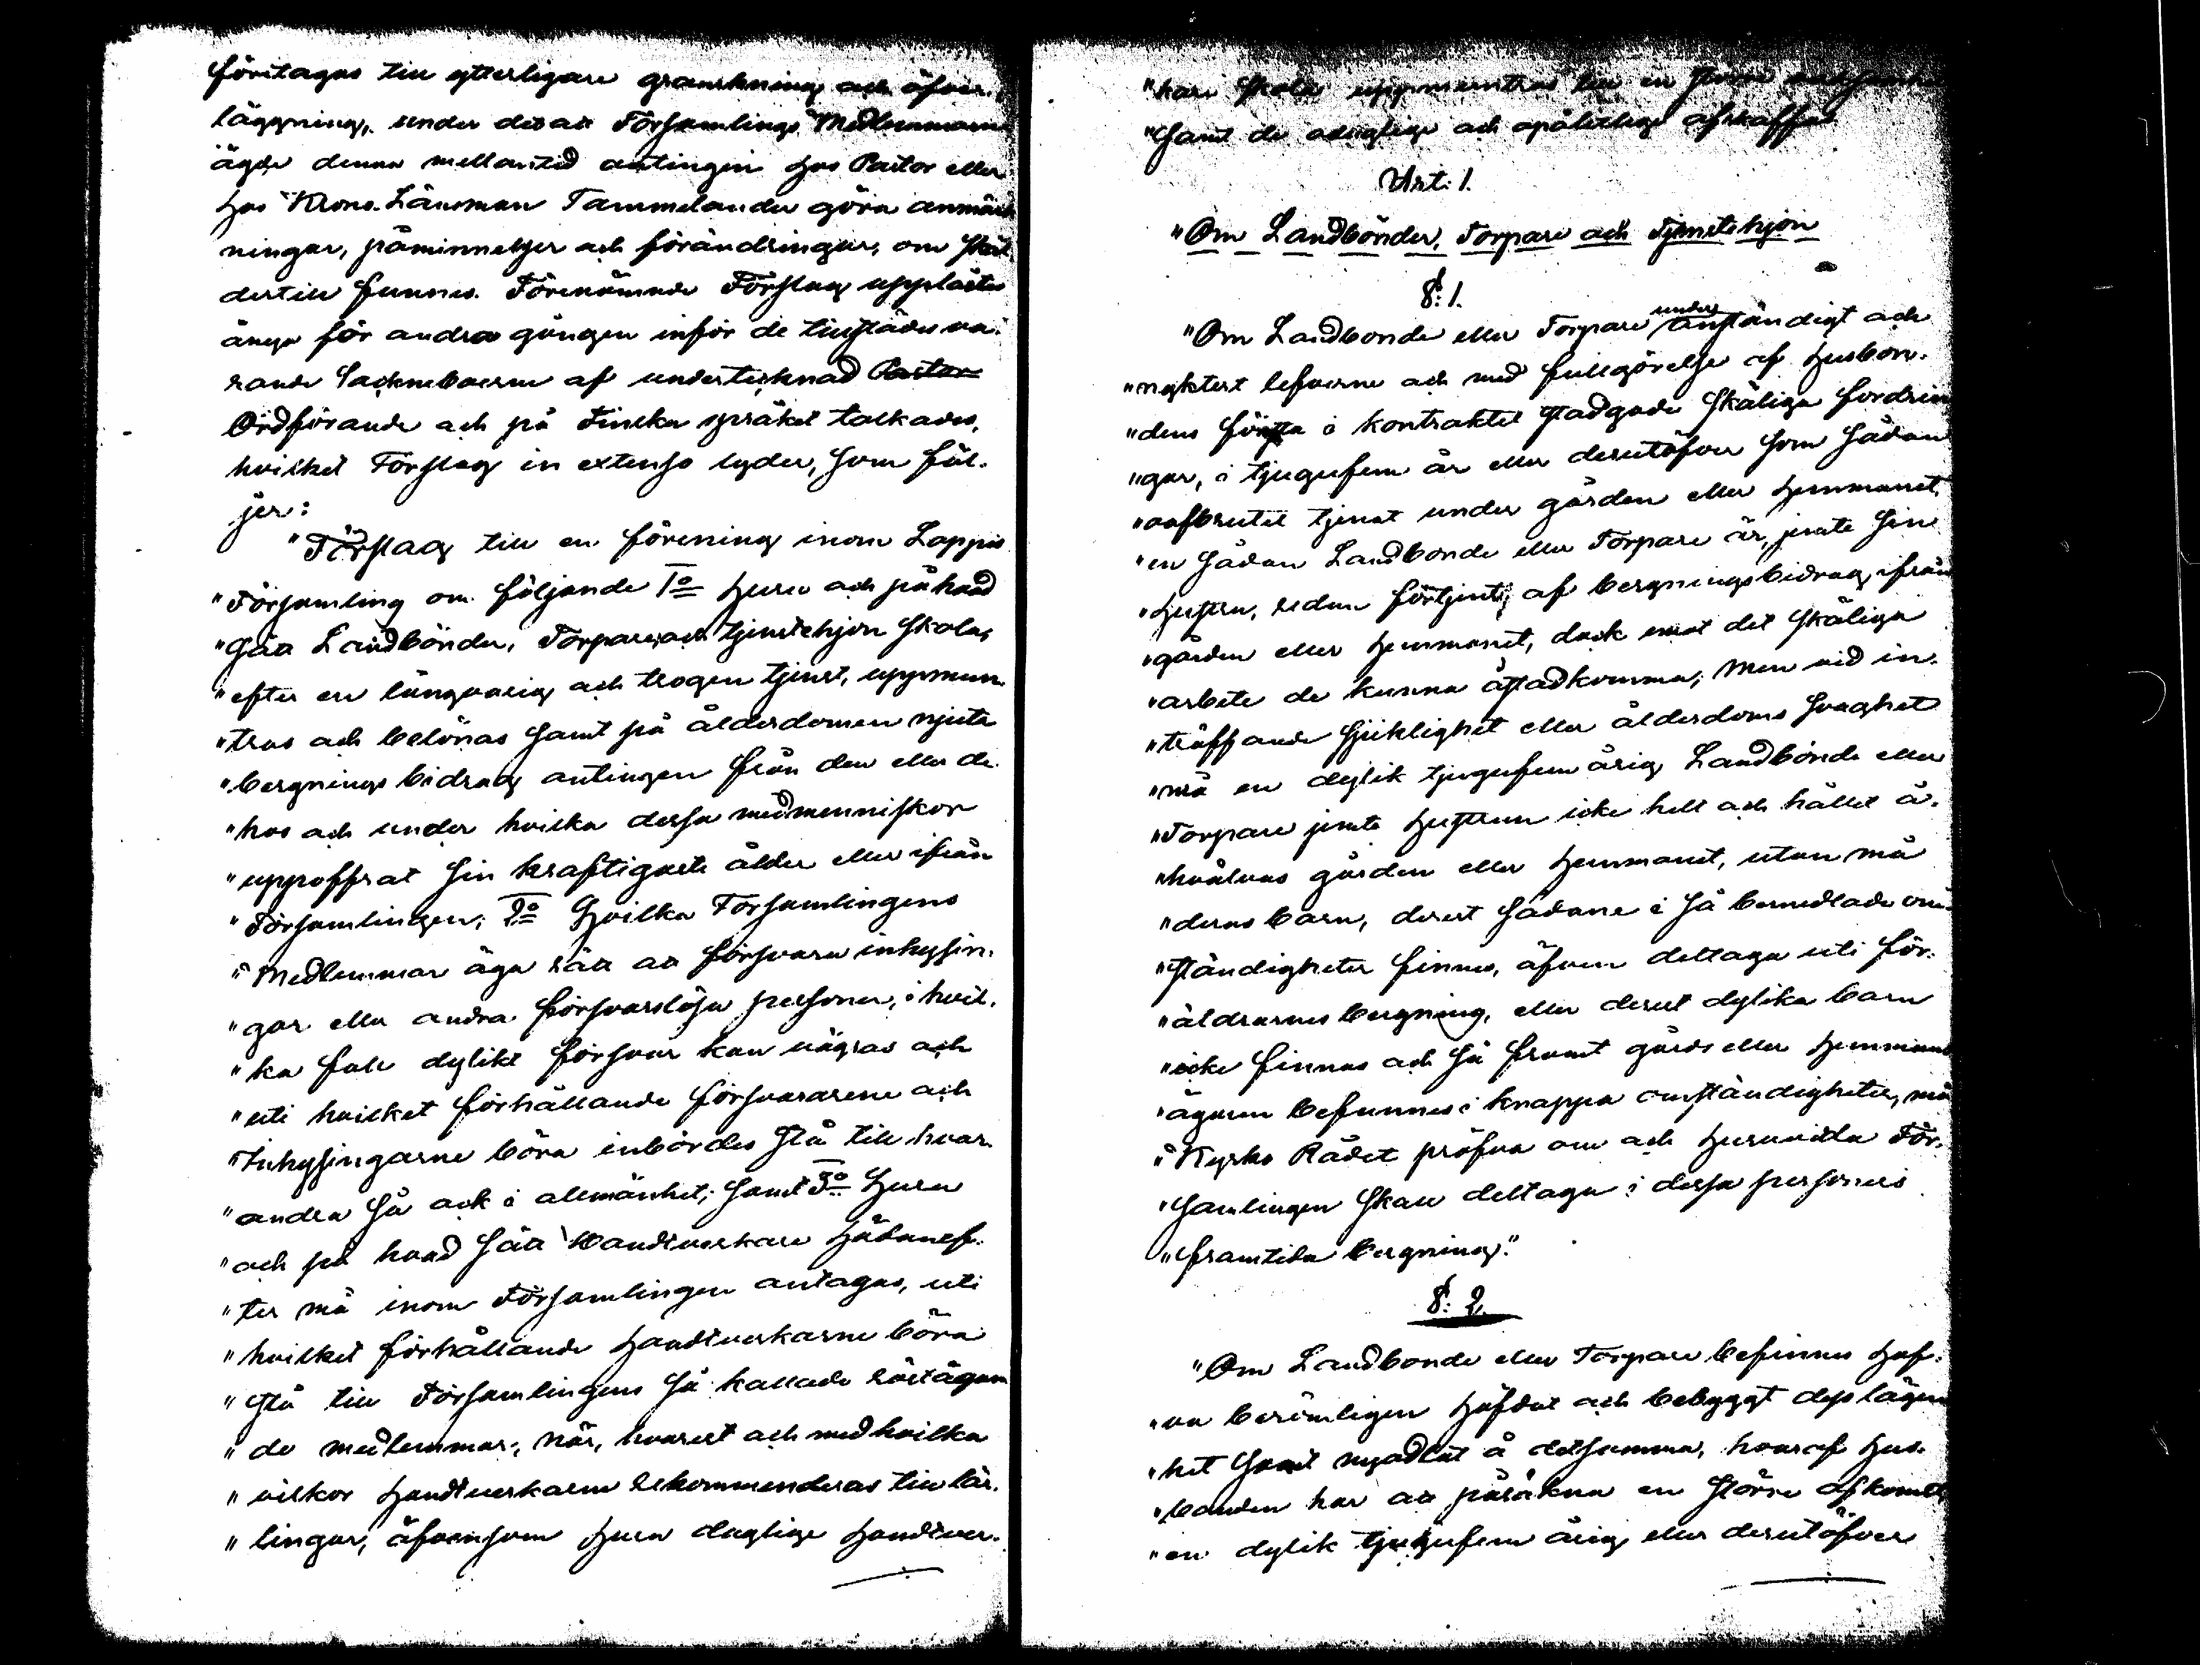 företagas till ytterligare granskning och öfver-
läggning, under det att Församlings Medlemmarne
ägde denna mellantid antingen hos Pastor eller
hos Krono-Länsman Tammelander göra anmärk
ningar, påminnelser och förändringar, om skäl
dertill funnes. Förenämnde Förslag upplästes
änyo för andra gången inför de tillstädesva-
rande Sockneboerne af undertecknad Pastor
Ordförande och på Finska språket tolkades,
hvilket Förslag in extenso lyder, som föl-
jer:
"Förslag till en förening inom Lappis
"Församling om följande 1o huru och på hvad
"sätt Landbönder, Torpare och tjenstehjon skola,
"efter en långvarig och trogen tjenst, uppmun-
"tras och belönas samt på ålderdomen njuta
"bergnings bidrag antingen från den eller de
"hos och under hvilka dessa medmenniskor
"uppoffrat sin kraftigaste ålder eller ifrån
"Församlingen; 2o Hvilka Församlingens
"Medlemmar äga rätt att försvara inhysin-
"gar eller andra försvarslösa personer, i hvil-
"ka fall dylikt försvar kan vägras och
"uti hvilket förhållande försvararene och
"Inhysingarne böra inbördes stå till hvar-
"andra så ock i allmänhet; samt 3o Huru
"och på hvad sätt Handtverkare hädanef-
"ter må inom Församlingen antagas, uti
"hvilket förhållande handtverkarne böra
"stå till Församlingens så kallade röstägan
"de medlemmar; när, hvarest och med hvilka
"vilkor handtverkarne rekommenderas till lär-
"lingar, äfvensom huru duglige handtver-
"kare skola uppmuntras till en
"samt de oduglige och opålitlige afskaffas
Art: 1.
"Om Landbönder, Torpare och Tjenstehjon
§: 1.
"Om Landbonde eller Torpare under anständigt och
"nyktert lefverne och med fullgörelse af husbon-
"dens första i kontraktet stadgade skäliga fordrin
"gar, i tjugufem år eller derutöfver som sådan
"oafbrutit tjenat under gården eller hemmanet,
"en sådan Landbonde eller Torpare är, jemte sin
"hustru, redan förtjent af bergningsbidrag ifrån
"gården eller hemmanet, dock emot det skäliga
"arbete de kunna åstadkomma; Men vid in-
"träffande sjuklighet eller ålderdoms svaghet
"må en dylik tjugufem årig Landbonde eller
"Torpare jemte hustrun icke helt och hållet å-
"hvälvas gården eller hemmanet, utan må
"deras barn, derest sådane i så bemedlade om-
"ständigheter finnes, äfven deltaga uti för-
"äldrarnes bergning, eller derest dylika barn
"icke finnas och så framt gårds eller hemmans
"ägaren befunnes i knappa omständigheter, må
"Kyrko Rådet pröfva om och huruvida För-
"samlingen skall deltaga i dessa personers
"framtida bergning."
§: 2.
"Om Landbonde eller Torpare befinnes haf-
"va berömligen häfdat och bebyggt dess lägen
"het samt nyodlat å detsamma, hvaraf hus-
"bonden har att påräkna en större afkomst
"en dylik tjugufem årig eller derutöfver